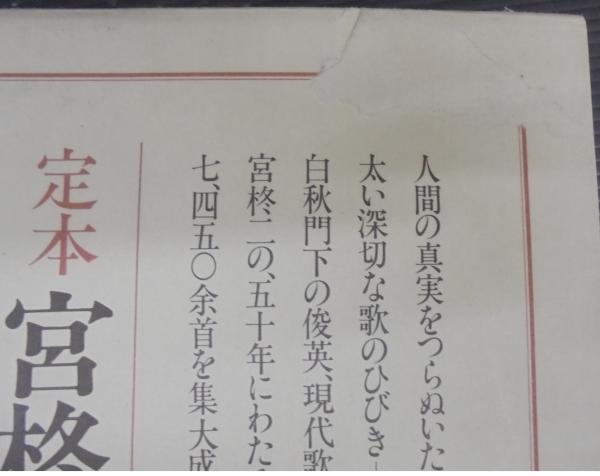 人間の真実をつらぬいた
太い深切な歌のひびき—
白秋門下の俊英、現代歌
宮柊二の、五十年にわた
七、四五〇余首を集大成
定本
宮柊